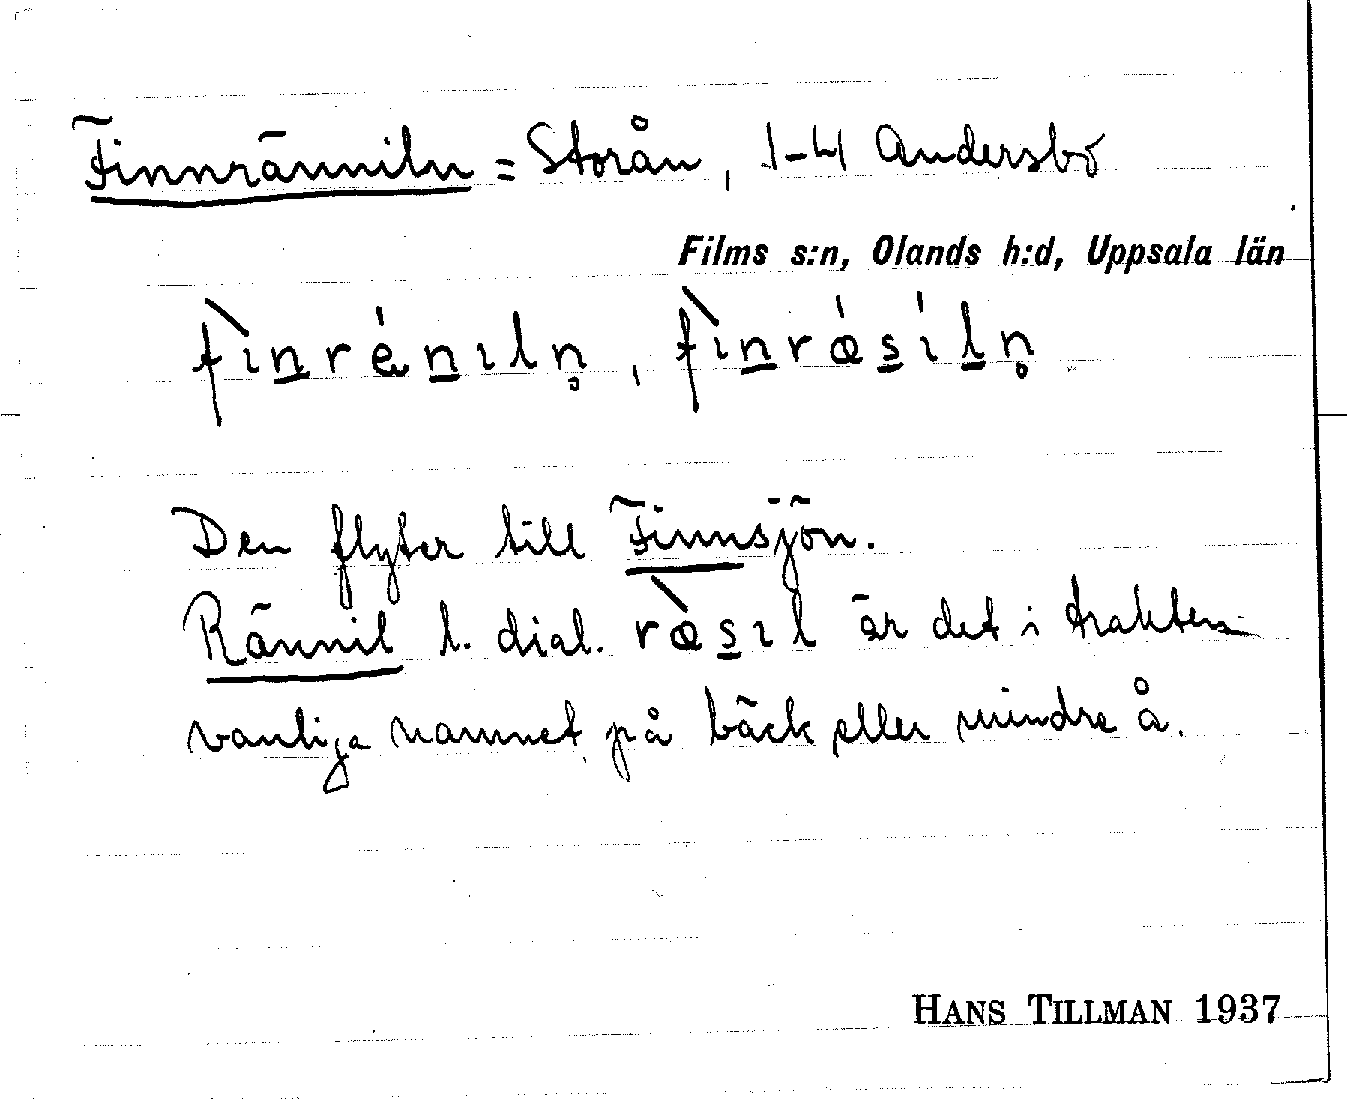 Finnränniln = Storån, 1-4 Andersbo
Films s:n, Olands h:d, Uppsala län
fìnrénıln̥, fìnrǽsíln̥
Den flyter till Finnsjön.
Rännil l. dial. ræ̀sıl är det i trakten
vanliga namnet på bäck eller mindre å.
HANS TILLMAN 1937